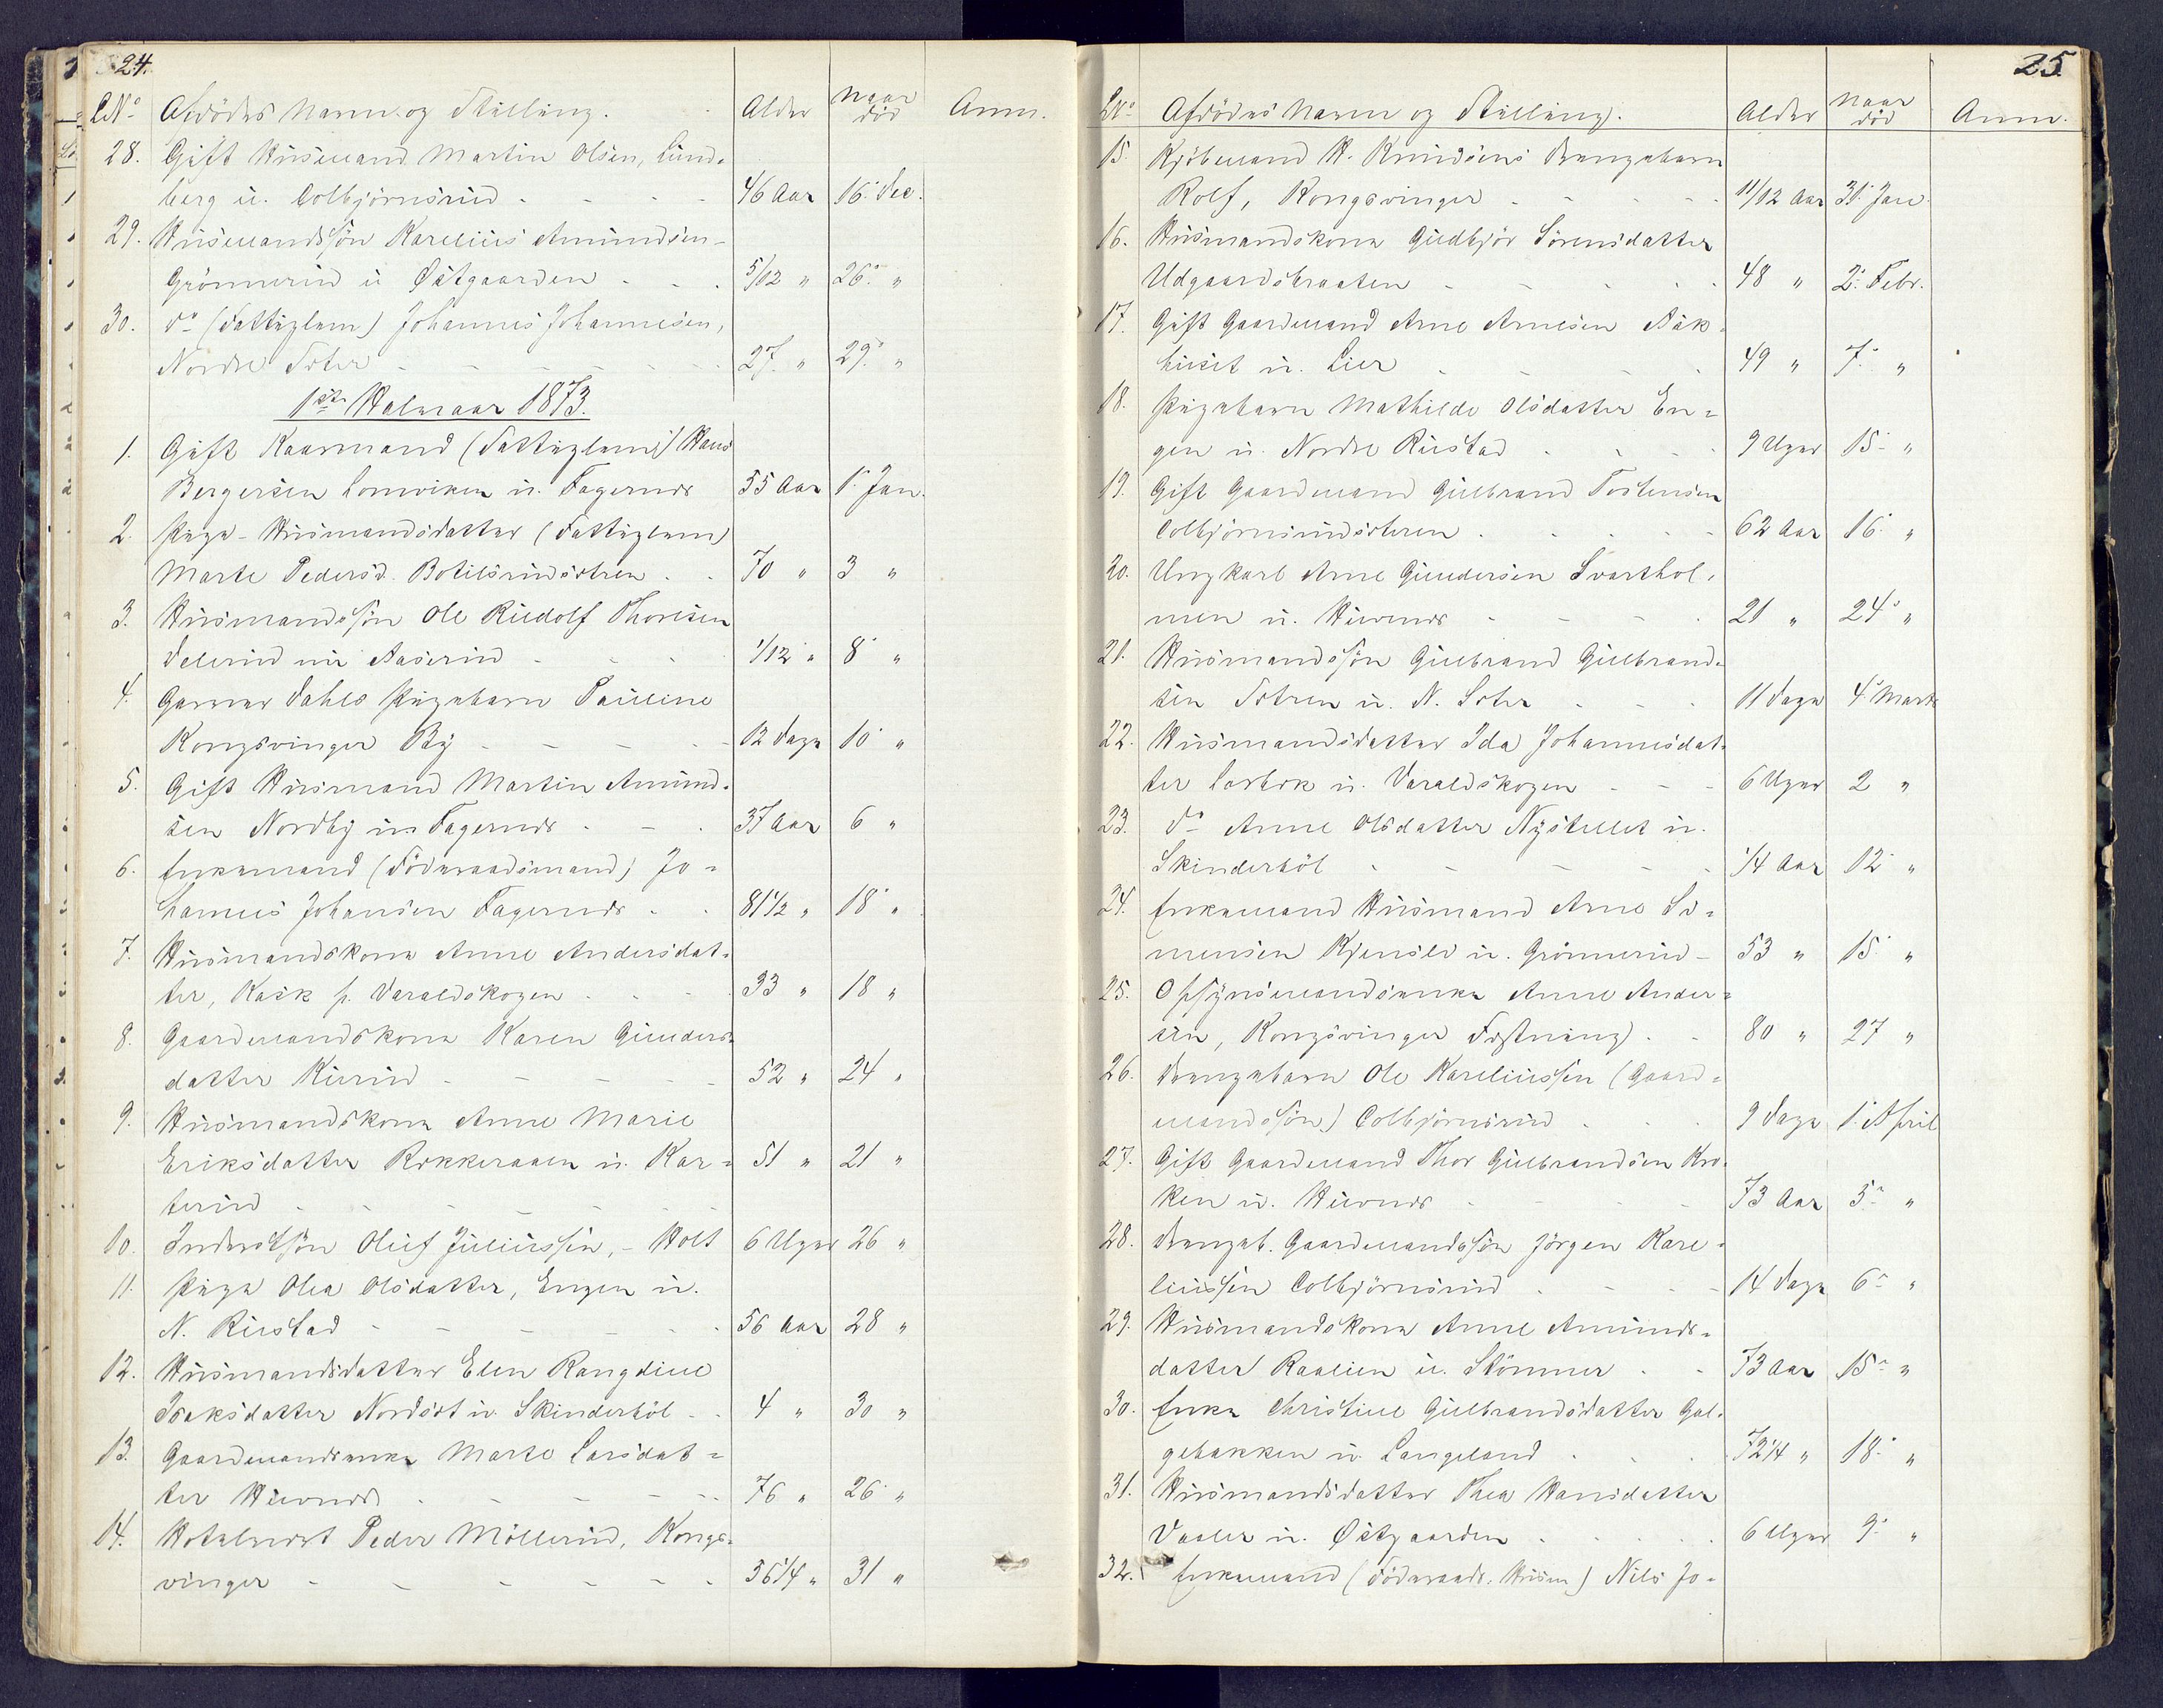 24.
LNo Afdödes Navn og Stilling. Alder Naar död Anm.
28. Gift Husmand Martin Olsen, Lund-
berg u. Colbjörnsrud - - - - 46 Aar 16. Dec.
29. Husmandssön Karelius Amundsen
Grönnerud u Østgaarden - - - 5/12 " 26. "
30. do (Fattiglem) Johannes Johannesen,
Nordre Soter - - - - - 27. " 29. "
1ste Halvaar 1873.
1. Gift Kaarmand (Fattiglem) Hans
Bergersen Lomviken u. Fagernes 55 Aar 1. Jan.
2. Pige - Husmandsdatter (Fattiglem)
Marte Pedersd. Botilsrudsötren - - 70 " 3 "
3. Husmandssön Ole Rudolf Thoresen
Delerud u. Aaserud - - - 1/12 " 8 "
4. Garver Dahls Pigebarn Pauline
Kongsvinger By - - - - 12 Dage 10 "
5. Gift Husmand Martin Amund-
sen Nordby u. Fagernes - - - 37 Aar 6 "
6. Enkemand (Föderaadsmand) Jo-
hannes Johansen Fagernes - - 81 1/2 " 18 "
7. Husmandskone Anne Andersdat-
ter, Kask p. Varaldskogen - - - 33 " 18 "
8. Gaardmandskone Karen Gunders-
datter Kurud - - - - - 52 " 24 "
9. Husmandskone Anne Marie
Eriksdatter Rokkeraaen u. Kar- 51 " 21 "
terud - - - - - -
10. Inderstsön Oluf Juliussen, - Holt 6 Uger 26 "
11. Pige Olea Olsdatter, Engen u.
N. Rustad - - - - - - 56 Aar 28 "
12. Husmandsdatter Elen Rangdine
Isaksdatter Nordset u. Skinderböl - - 4 " 30 "
13. Gaardmandsenke Marte Larsdat-
ter Huvnes - - - - - 76 " 26 "
14. Hotelvert Peder Möllerud, Kongs-
vinger - - - - - - 36 1/4 " 31 "
25.
LNo Afdödes Navn og Stilling. Alder Naar död Anm.
15. Kjöbmand H. Knudsens Drengebarn
Rolf, Kongsvinger - - - - - 11/12 Aar 31. Jan.
16. Husmandskone Gudbjör Sörensdatter
Udgaardsbraaten - - - - - 48 " 2. Febr.
17. Gift Gaardmand Arne Arnesen Bak-
huset u. Lier - - - - 49 " 7. "
18. Pigebarn Mathilde Olsdatter En-
gen u. Nordre Rustad - - - - 9 Uger 15 "
19. Gift Gaardmand Gulbrand Tostensen
Colbjörnsrudsteren - - - - - 62 Aar 16. "
20. Ungkarl Arne Gundersen Svarthol-
men u. Huvnes - - - - 21 " 24. "
21. Husmandssön Gulbrand Gulbrand-
sen Sotren u. N. Soter - - - 11 Dage 4. Marts
22. Husmandsdatter Ida Johannesdat-
ter Lavbrk u. Varaldskogen - - - 6 Uger 2 "
23. do Anne Olsdatter Nystellet u.
Skinderböl - - - - - 1/4 Aar 12 "
24. Enkemand Husmand Arne Si-
mensen Kjensli u. Grönnerud - 53 " 15 "
25. Opsynsmandsenke Anne Ander-
sen, Kongsvinger Fæstning - - 80 " 27 "
26. Drengebarn Ole Kareliussen (Gaard-
mandssön) Colbjörnsrud - - - 9 Dage 1. April
27. Gift Gaardmand Thor Gulbrandsen Kro-
ken u. Huvnes - - - - 73 Aar 5. "
28. Drengeb. Gaardmandssön Jörgen Kare-
liussen Colbjörnsrud - - - - 14 Dage 6. "
29. Husmandskone Anne Amunds-
datter Raalien u. Stömner - - 73 Aar 15. "
30. Enke Christine Gulbrandsdatter Gal-
gebakken u. Langeland - - - 72 1/4 " 18. "
31. Husmandsdatter Thea Hansdatter
Vaaler u. Østgaarden - - - - - 6 Uger 9. "
32. Enkemand (Föderaads. Husm.) Nils Jo-